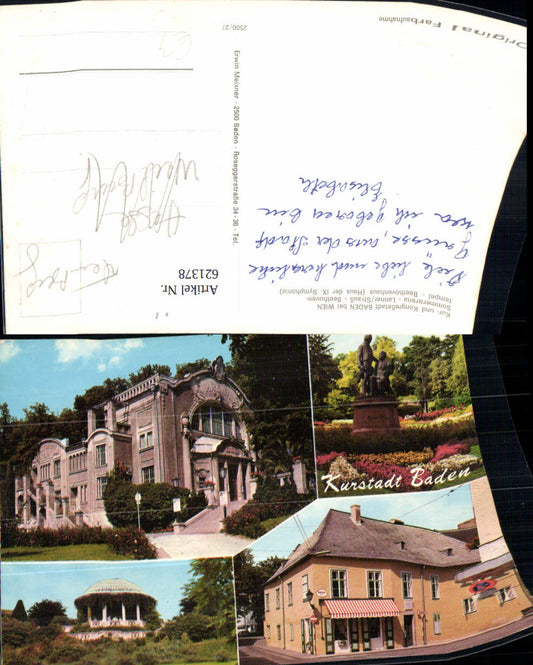 Original Farbaufnahme
2500/27
Erwin Meixner · 2500 Baden · Roseggerstraße 34-36 · Tel.
Viele liebe und herzliche
Grüsse, aus der Stadt
wo ich geboren bin
Elisabeth
Kur- und Kongreßstadt BADEN bei WIEN
Sommerarena · Lanner/Strauß · Beethoven-
Tempel · Beethovenhaus (Haus der IX. Symphonie)
Artikel Nr.
621378
Kurstadt Baden